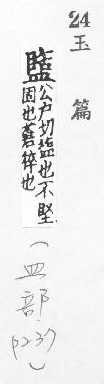 24
玉篇
盬
公戶切塩也不堅
固也蒼猝也
(皿部 p237)